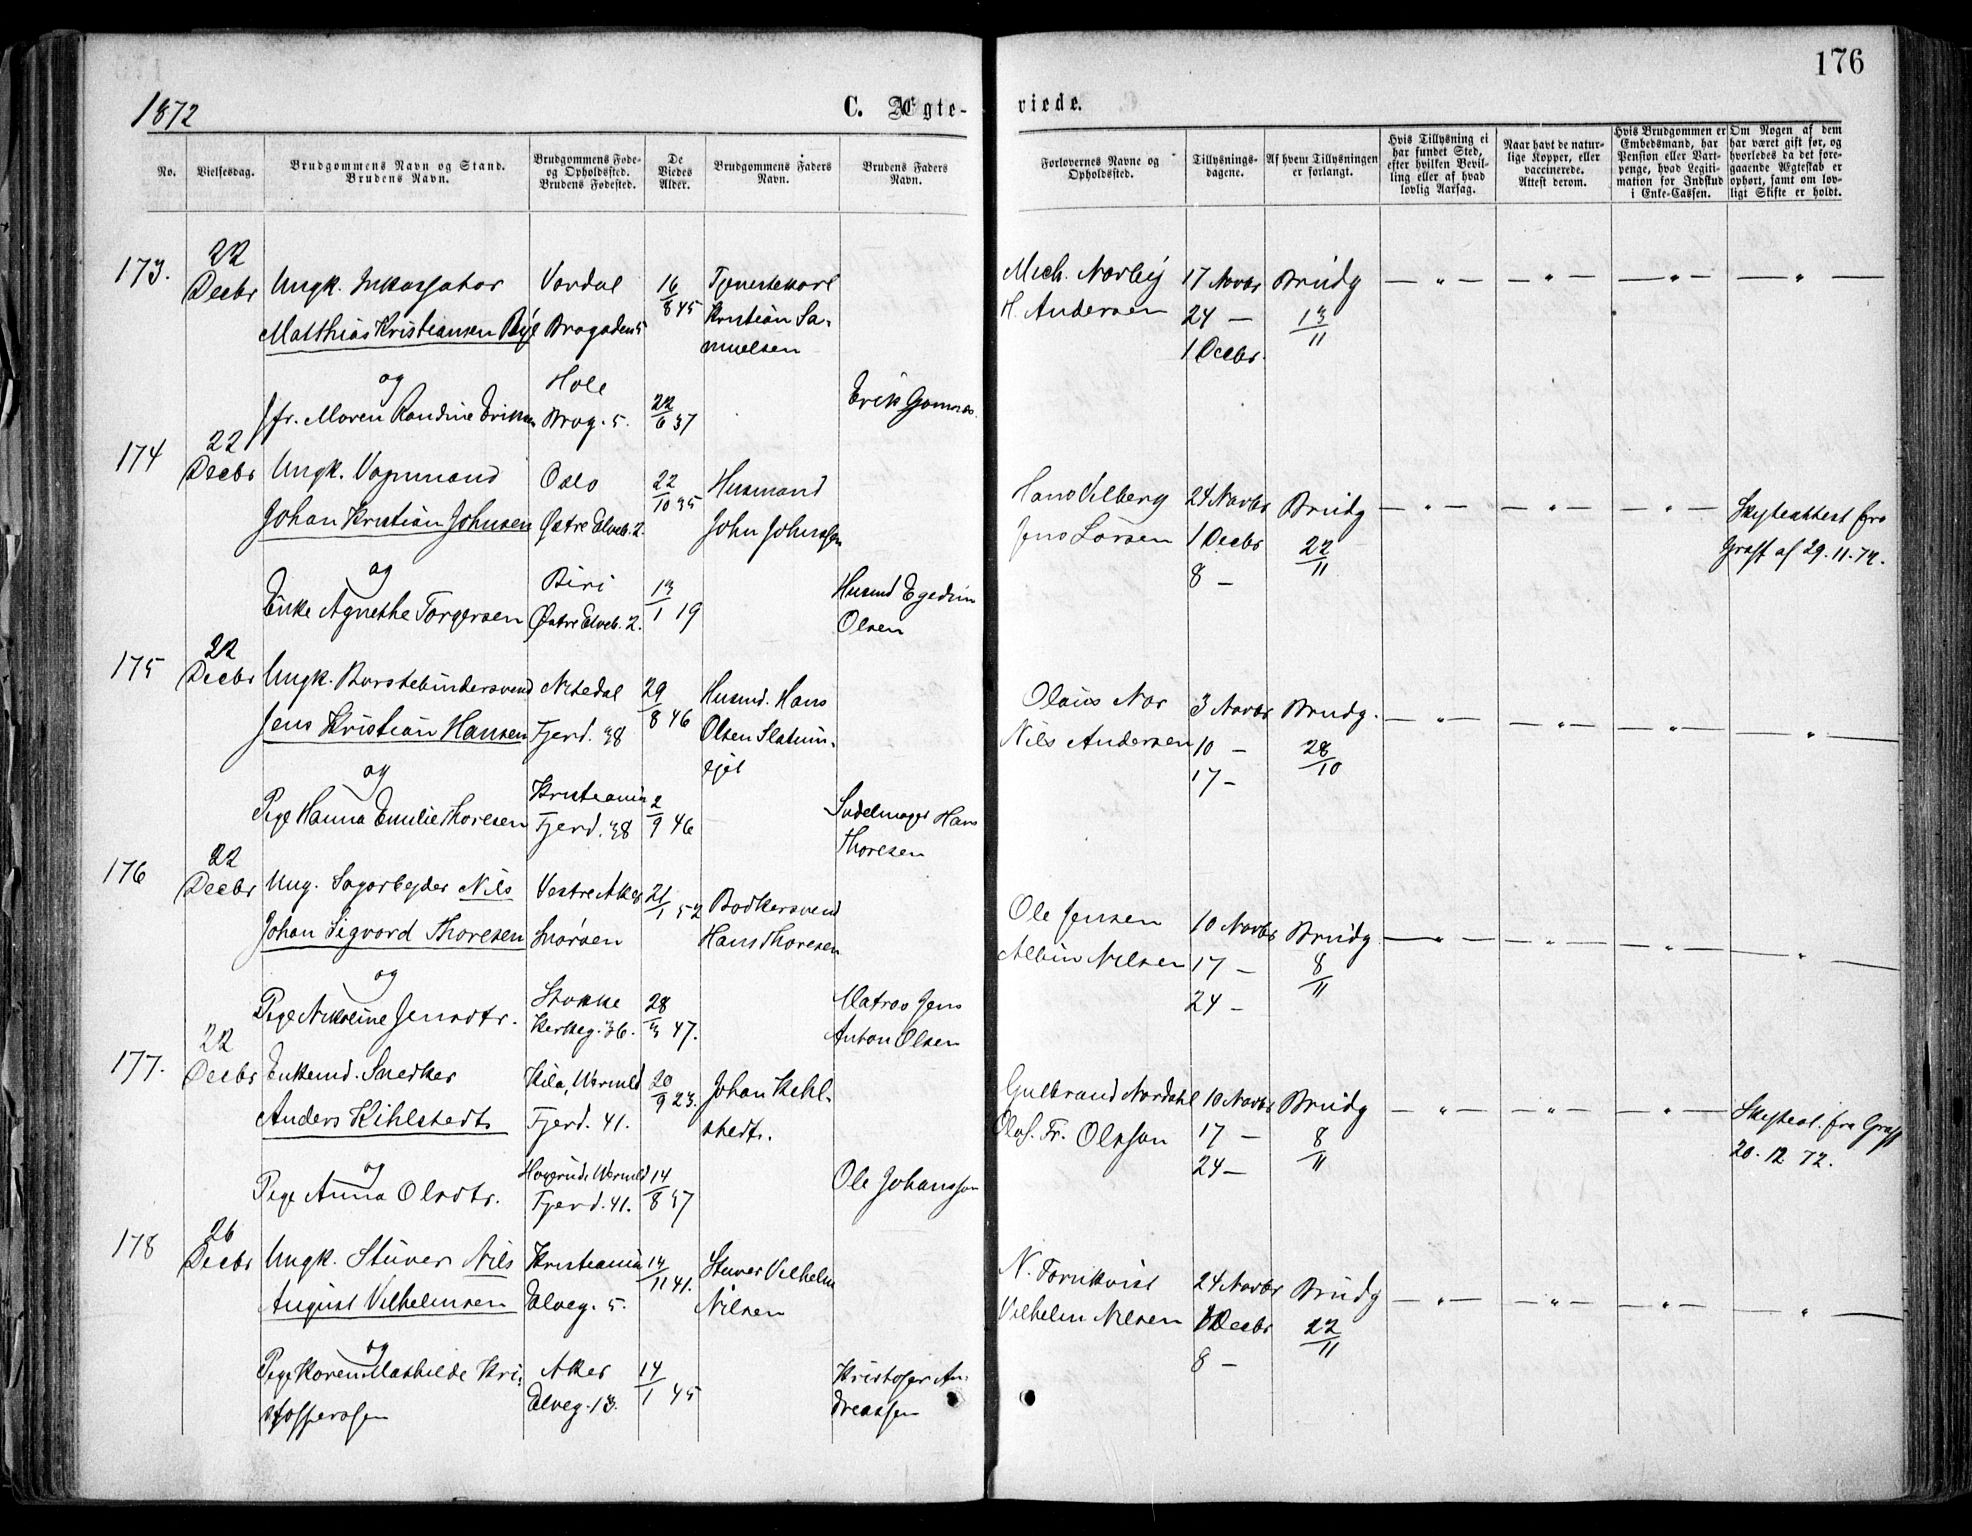 176
1872
C. Ægte-
viede.
No.
Vielsesdag.
Brudgommens Navn og Stand.
Brudens Navn.
Brudgommens Føde-
og Opholdssted.
Brudens Fødested.
De
Viedes
Alder.
Brudgommens Faders
Navn.
Brudens Faders
Navn.
Forlovernes Navne og
Opholdssted.
Tillysnings-
dagene.
Af hvem Tillysningen
er forlangt.
Hvis Tillysning ei
har fundet Sted,
efter hvilken Bevil-
ling eller af hvad
lovlig Aarsag.
Naar havt de natur-
lige Kopper, eller
vaccinerede.
Attest derom.
Hvis Brudgommen er
Embedsmand, har
Pension eller Vart-
penge, hvad Legiti-
mation for Indskud
i Enke-Cassen.
Om Nogen af dem
har været gift før, og
hvorledes da det fore-
gaaende Ægteskab er
ophørt, samt om lov-
ligt Skifte er holdt.
173.
22
Decbr
Ungk. Inkassator
Matthias Kristiansen Bye
og
Jfr. Maren Randine Eriksen
Vardal
Brogaden 5
Hole
Brog. 5.
16/8 45
22/6 37
Tjenestekarl
Kristian Sa-
muelsen
Erik Gomnæs.
Mich. Narbÿ
H. Andersen
17 Novbr
24 —
1 Decbr.
Brudg
13/11
— " — — " — — " — "
174
22
Decbr
Ungk. Vognmand
Johan Kristian Johnsen
og
Enke Agnethe Torgersen
Oslo
Østre Elveb. 2.
Biri
Østre Elveb. 2.
22/10 35
13/1 19
Husmand
John Johnssen
Husmd Egedius
Olsen
Hans Vilberg
Jens Larsen
24 Novbr
1 Decbr
8 —
Brudg
22/11
— " — — " — — " —
Skifteattest fra
Graff af 29.11.72.
175
22
Decbr
Ungk. Børstebindersvend
Jens Kristian Hansen
og
Pige Hanna Emilie Thoresen
Nitedal
Fjerd. 38
Kristiania
Fjerd. 38
29/8 46
2/9 46
Husmd. Hans
Olsen Slatum-
ejet
Sadelmager Hans
Thoresen
Olaus Nor
Nils Andersen
3 Novbr
10 —
17 —
Brudg.
28/10
— " — — " — — " — "
176
22
Decbr
Ung. Sagarbejder Nils
Johan Sigvard Thoresen
og
Pige Nikoline Jensdtr.
Vestre Aker
Snarøen
Stokke
Kerkeg. 36.
21/1 52
28/3 47.
Bødkersvend
Hans Thoresen
Matros Jens
Anton Olsen
Ole Jensen
Albin Nilsen
10 Novbr
17 —
24 —
Brudg
8/11
— " — — " — — " — "
177.
22
Decbr
Enkemd. Snedker
Anders Kihlstedt
og
Pige Anna Olsdtr.
Kila, Wermld
Fjerd. 41.
Högerud, Wermld
Fjerd. 41.
20/9 23.
14/8 37
Johan Kihl-
stedt.
Ole Johansson
Gulbrand Nordahl
Olof. Fr. Olsson
10 Novbr
17 —
24 —
Brudg
8/11
— " — — " — — " —
Skifteat. fra Graff
20.12 72.
178
26
Decbr
Ungk. Stuver Nils
August Vilhelmsen
og
Pige Karen Mathilde Kri-
stoffersen
Kristiania
Elveg. 5.
Aker
Elveg. 13.
14/11 41.
14/1 45
Stuver Vilhelm
Nilsen
Kristofer An-
dreassen
N. Tornkvist
Vilhelm Nilsen
24 Novbr
1 Decbr
8 —
Brudg
22/11
— " — — " — — " — "